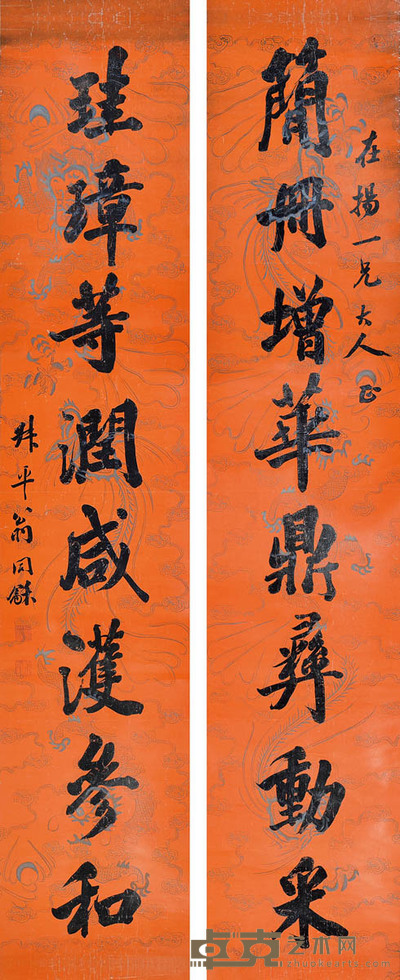 簡冊增華鼎彝動采
在揚一兄大人正
珪璋等潤咸濩參和
叔平翁同龢
卓克艺术网